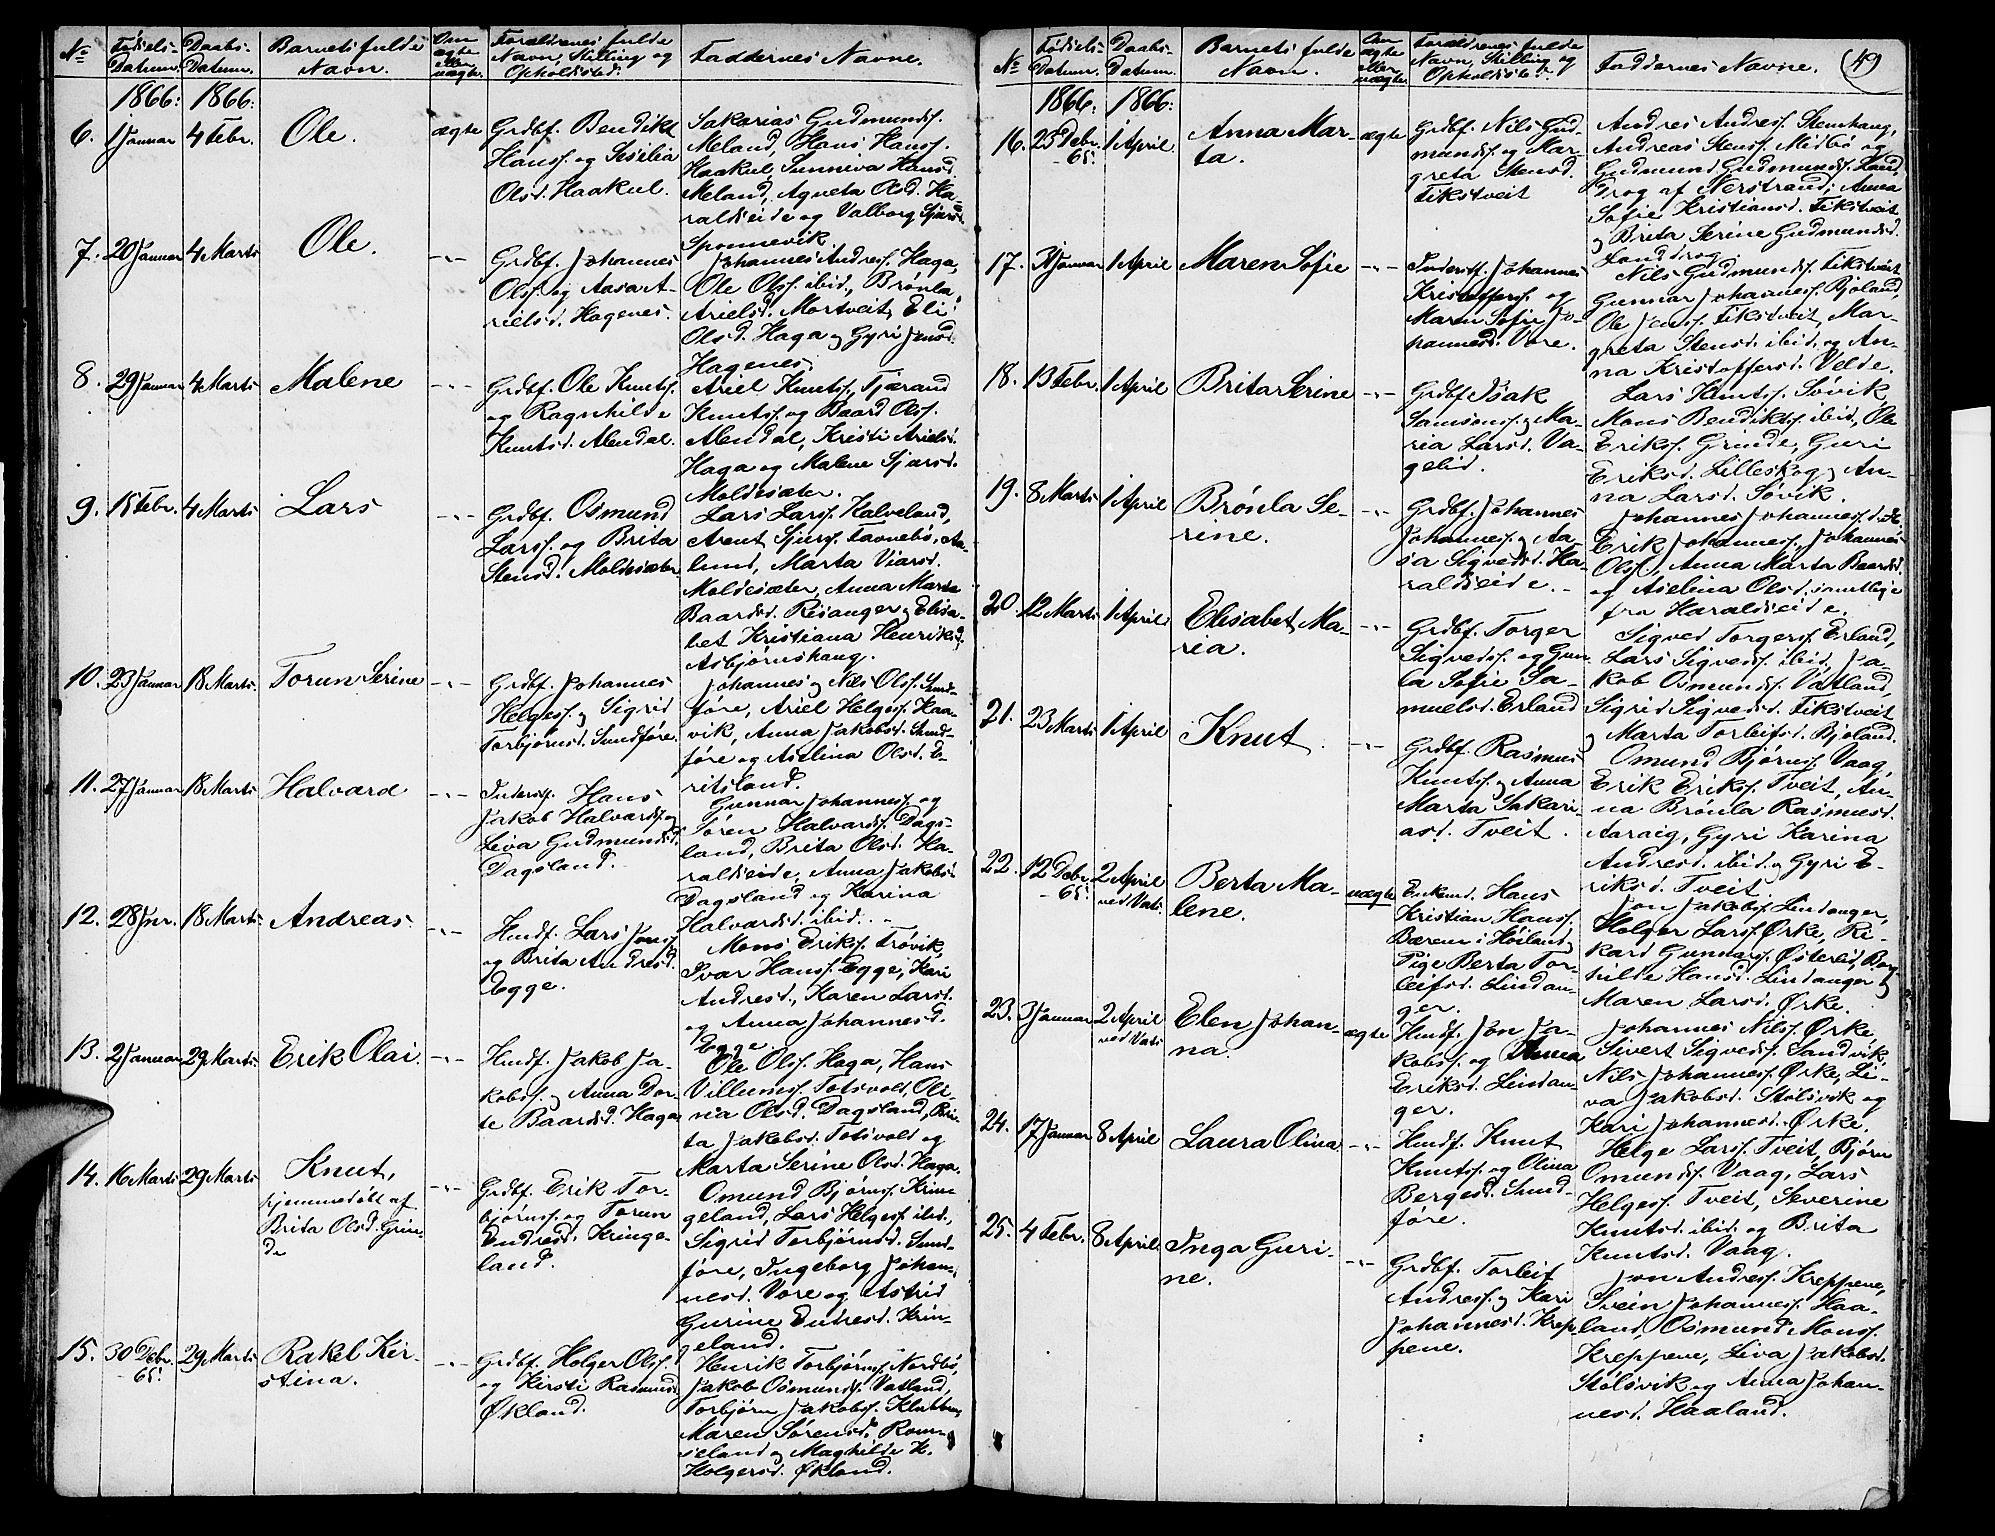 No
Fødsels-
Datum.
Daabs-
Datum.
Barnets fulde
Navn.
Om
ægte
eller
uægte.
Forældrenes fulde
Navn, Stilling og
Opholdssted.
Faddernes Navne.
1866: 1866:
6. 1 Januar 4 Febr. Ole. ægte
Grdbf. Bendikt
Hanss. og Sesilia
Olsd. Haakul.
Sakarias Gudmunds.
Meland, Hans Hanss.
Haakul, Sunniva Hansd.
Meland, Agneta Olsd. Ha-
raldseide og Valborg Sjursd.
Sponnevik
7. 20 Januar 4 Marts Ole. -"-
Grdbf. Johannes
Olss. og Aasa A-
rielsd. Hagenes.
Johannes Andress. Haga,
Ole Olss. ibid., Brønla
Arielsd. Mortveit, Eli
Olsd. Haga og Gyri Jensd.
Hagenes.
8. 29 Januar 4 Marts Malene -"-
Grdbf. Ole Knuts.
og Ragnhilde
Knutsd. Alendal.
Ariel Knutss., Tjærand
Knutss. og Baard Olss.
Alendal, Kristi Arielsd.
Haga og Malene Sjursd.
Moldesæter.
9. 15 Febr. 4 Marts Lars -"-
Grdbf. Osmund
Larss. og Brita
Stensd. Moldesæter
Lars Larss. Halveland,
Arent Sjurss. Favnebø, Aa-
lund, Marta Viarsd.
Moldesæter, Anna Marta
Baardsd. Risanger og Elisa-
bet Kristiana Henriksd.
Asbjørnshaug.
10. 23 Januar 18 Marts. Torun Serine -"-
Grdbf. Johannes
Helgess. og Sigrid
Torbjørnsd. Sundføre.
Johannes og Nils Olss. Sund-
føre, Ariel Helgess. Haa-
vik, Anna Jakobsd. Sund-
føre og Aselina Olsd. E-
ritsland.
11. 27 Januar 18 Marts Halvard -"-
Inderst. Hans
Jakob Halvards. og
Liva Gudmundsd.
Dagsland.
Gunnar Johanness. og
Søren Halvards. Dags-
land, Brita Olsd. Ha-
raldseide, Anna Jakobsd.
Dagsland og Karina
Halvardsd. ibid.
12. 28 Jnr. 18 Marts Andreas -"-
Husf. Lars Jons.
og Brita Andresd.
Egge.
Mons Eriks. Frøvik,
Ivar Hanss. Egge, Kari
Andresd., Karen Larsd.
og Anna Johannesd.
Egge.
13. 2 Januar 29 Marts Erik Olai. -"-
Husf. Jakob Ja-
kobss. og Anna Dor-
te Baardsd. Haga
Ole Olss. Haga, Hans
Villumss. Totsvolt, Oli-
na Olsd. Dagsland, Bri-
ta Jakobsd. Totsvolt og
Marta Serine Olsd. Haga.
14. 16 Marts 29 Marts Knut,
hjemmedøbt af
Brita Olsd. Grin-
de
-"-
Grdbf. Erik Tor-
bjørnss. og Torun
Endresd. Kringe-
land.
Omund Bjørnss. Krin-
geland, Lars Helgess. ibid.,
Sigrid Torbjørnsd. Sund-
føre, Ingeborg Johan-
nesd. Vore og Astrid
Gurine Endresd. Krin-
geland.
15. 30 Debr. 29 Marts
-65.
Rakel Kir-
stina.
-"-
Grdbf. Holger Olss.
og Kirsti Rasmusd.
Økland.
Henrik Torbjørns. Nordbø,
Jakob Osmunds. Vatland,
Torbjørn Jakobss. Klubben,
Maren Sørensd. Rom-
seland og Maghilde H.
Holgersd. Økland.
No
Fødsels-
Datum.
Daabs-
Datum.
Barnets fulde
Navn.
Om
ægte
eller
uægte
Forældrenes fulde
Navn, Stilling og
Opholdssted.
Faddernes Navne.
49
1866: 1866:
16. 25 Debr. 1 April
-65.
Anna Mar-
ta.
ægte
Grdbf. Nils Gud-
munds. og Mar-
greta Stensd.
Fikstveit
Andres Andress. Stenhaug,
Andreas Stens. Midbø og
Gudmund Gudmunds. Land-
drog af Nerstrand, Anna
Sofie Kristiansd. Fikstveit
og Brita Serine Gudmundsd.
Landdrog.
17. 31 Januar 1 April Maren Sofie -"-
Inderst. Johannes
Kristofferss. og
Maren Sofie Jo-
hannesd. Vore.
Nils Gudmunds. Fikstveit
Gunnar Johanness. Bjoland,
Ole Jens. Fikstveit, Mar-
greta Stensd. ibid. og An-
na Kristoffersd. Velde.
18. 13 Febr. 1 April Brita Serine -"-
Grdbf. Isak
Samsons. og Ma-
ria Larsd. Va-
gelid.
Lars Knutss. Søvik
Mons Bendikts. ibid., Ole
Erikss. Grinde, Guri
Eriksd. Lilleskog og An-
na Larsd. Søvik.
19. 8 Marts 1 April Brønla Se-
rine.
-"-
Grdbf. Johannes
Johanness. og Aa-
sa Sigvedsd. Ha-
raldseide.
Johannes Johanness.
Erik Johanness., Johannes
Olss., Anna Marta Baardsd.
og Aselina Olsd. samtlige
fra Haraldseide.
20. 12 Marts 1 April Elisabet Ma-
ria.
-"-
Grdbf. Torger
Sigvedss. og Gun-
la Sofie Sa-
muelsd. Erland
Sigved Torgerss. Erland,
Lars Sigvedss. ibid., Ja-
kob Osmunds. Vatland,
Sigrid Sigvedsd. Fikstveit
og Marta Torleifsd. Bjoland.
21. 23 Marts 1 April Knut. -"-
Grdbf. Rasmus
Knutss. og Anna
Marta Sakari-
asd. Tveit.
Omund Bjørns. Vaag,
Erik Erikss. Tveit, An-
na Brønla Rasmusd.
Aaraig, Gyri Karina
Andresd. ibid. og Gyri E-
riksd. Tveit.
22. 12 Debr. 2 April
-65. ved Vats.
Berta Ma-
lene.
uægte
Enkem. Hans
Kristian Hanss.
Bærem i Høiland,
Pige Berta Tor-
leifsd. Lindan-
ger.
Jon Jakobss. Lindanger,
Holger Larss. Ørke, Ri-
kard Gunnars. Østerlid, Bog-
hilde Hansd. Lindanger og
Maren Larsd. Ørke.
23. 3 Januar 2 April
ved Vats
Elen Johan-
na.
ægte
Husf. Jon Ja-
kobss. og Anna
Eriksd. Lindan-
ger.
Johannes Nilss. Ørke
Sivert Sigvedss. Sandvik
Nils Johanness. Ørke, Li-
va Jakobsd. Stølsvik og
Kari Johannesd. Ørke.
24. 17 Januar 8 April Laura Olina -"-
Husf. Knut
Knutss. og Olina
Bergesd. Sund-
føre.
Helge Larss. Tveit, Bjørn
Omunds. Vaag, Lars
Helgess. Tveit, Severine
Knutsd. ibid. og Brita
Knutsd. Vaag.
25. 4 Febr. 8 April. Inga Guri-
ne.
-"-
Grdbf. Torleif
Andress. og Kari
Johannesd. Krep-
pene.
Jon Andress. Kreppene,
Svein Johanness. Haa-
land, Osmund Monss.
Kreppene, Liva Jakobsd.
Stølsvik og Anna Johan-
nesd. Haaland.